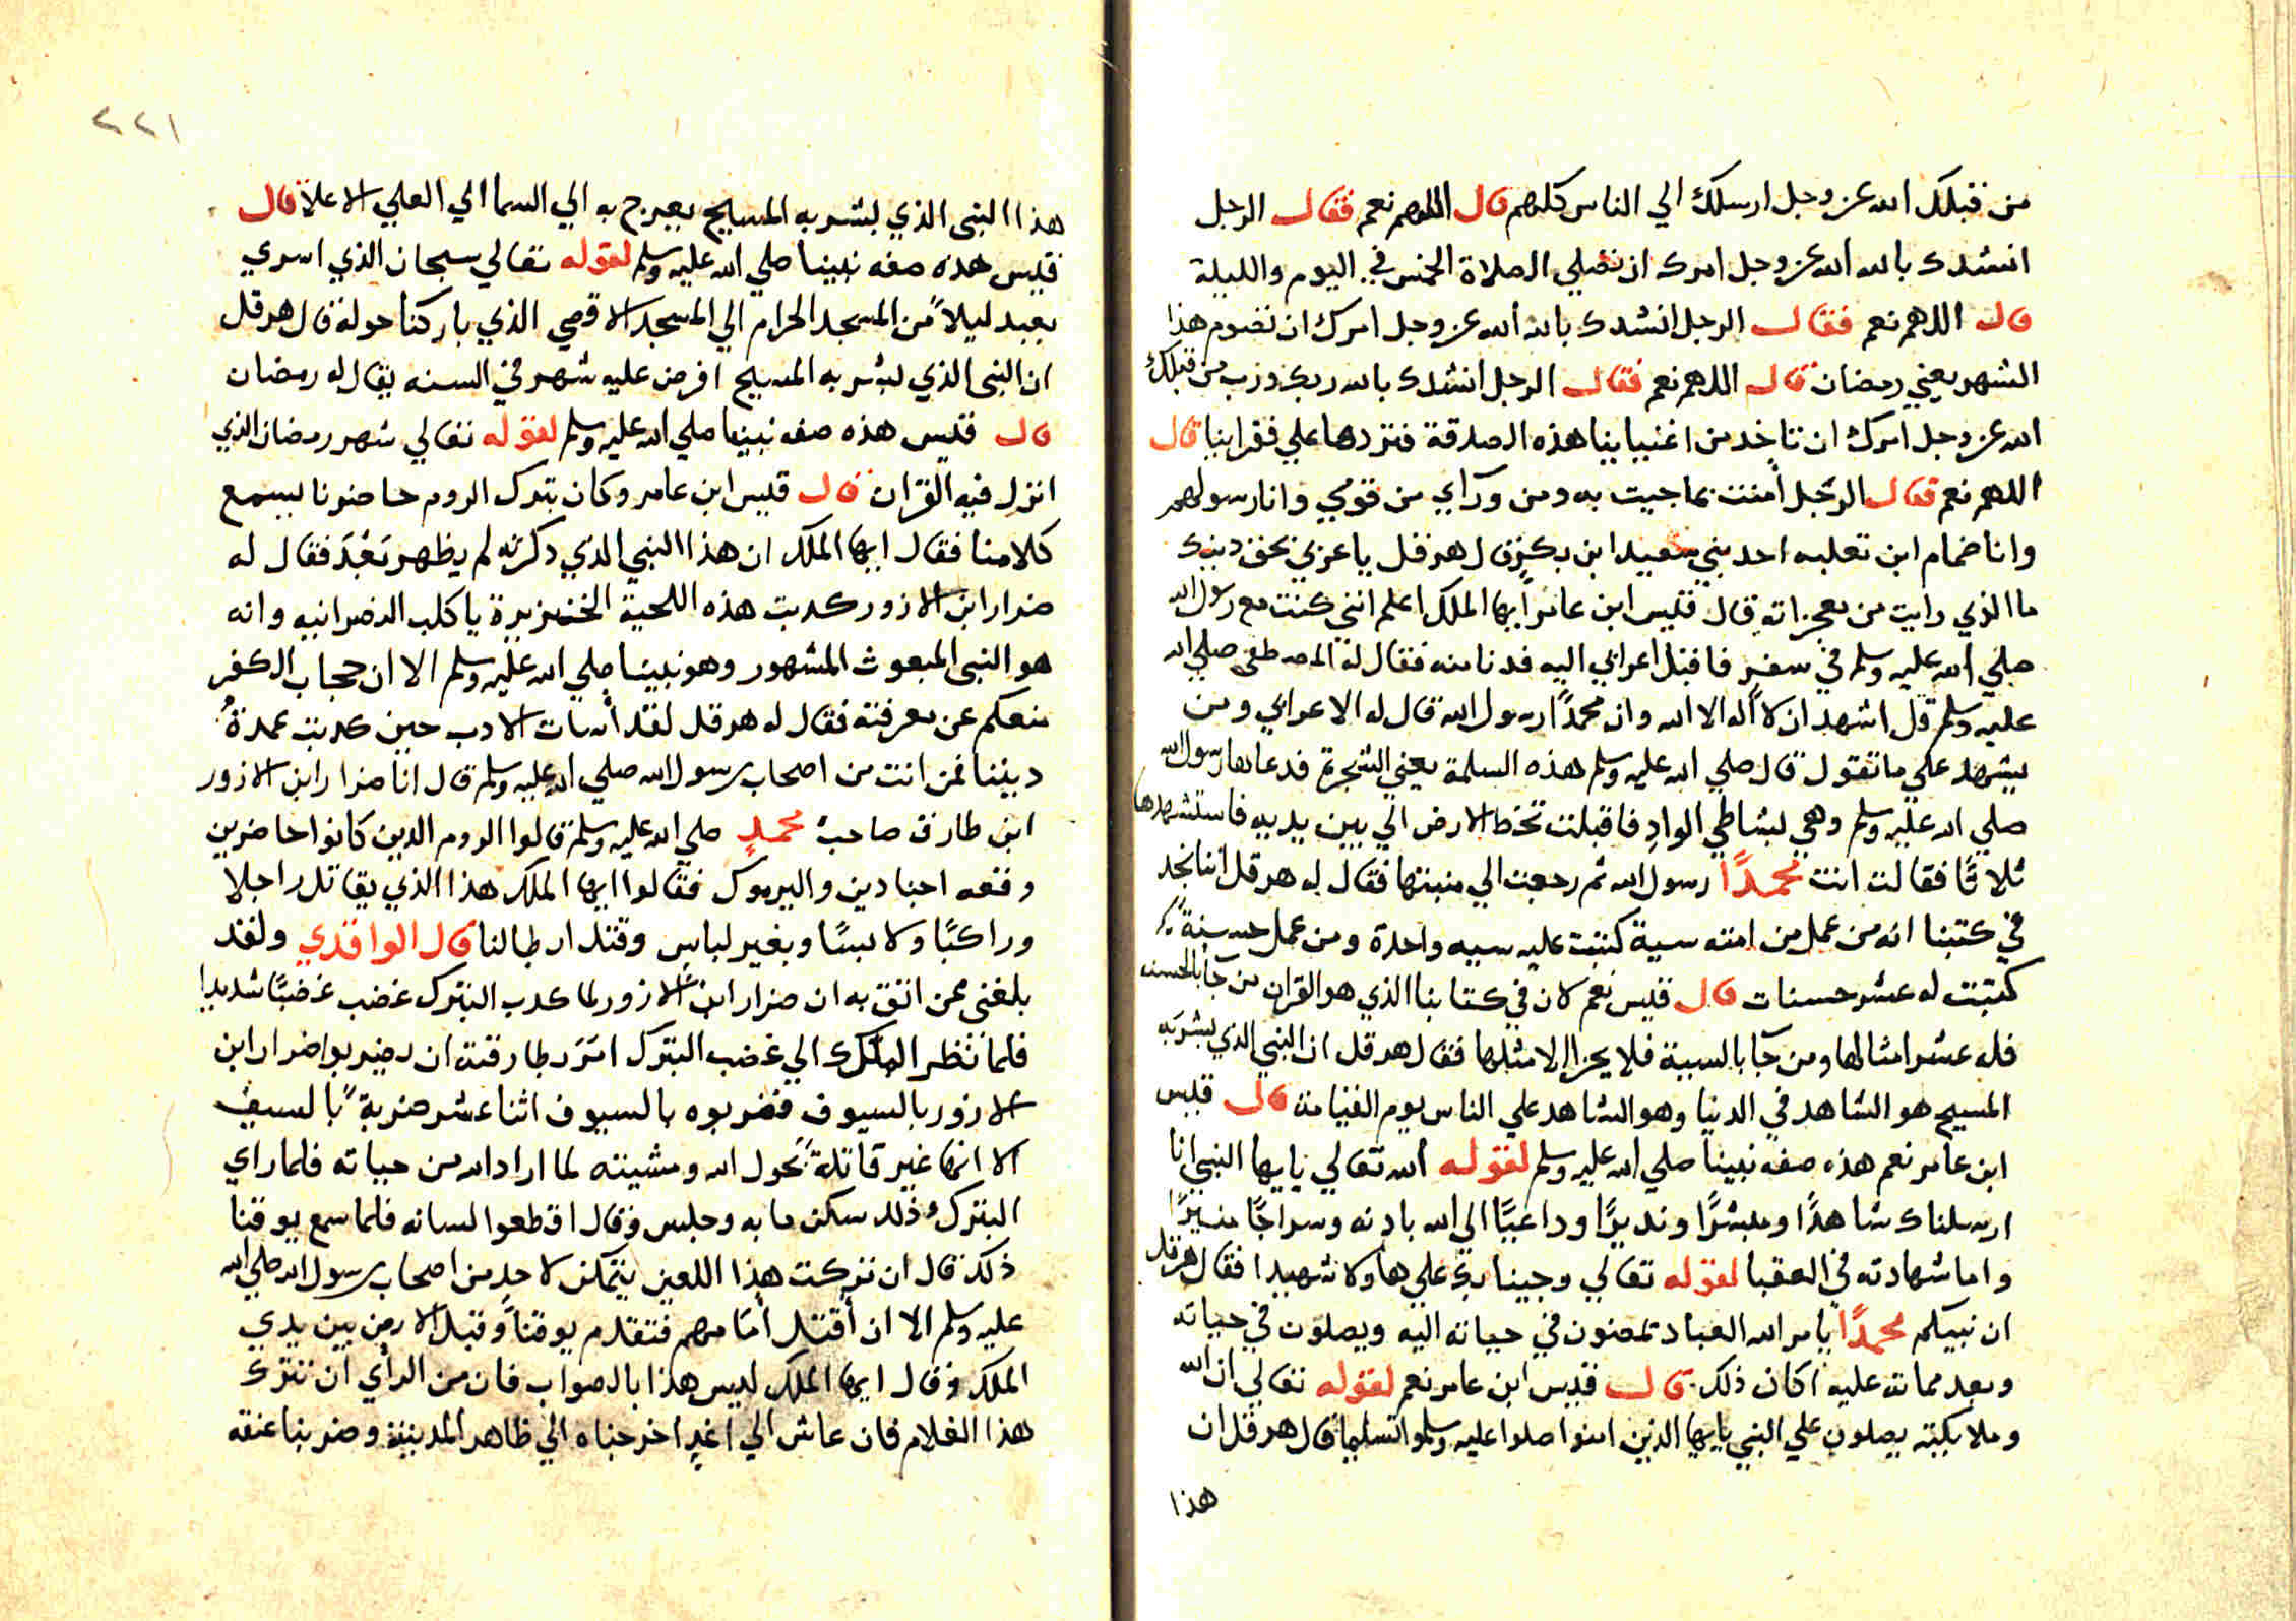 من قبلك الله عز وجل ارسلك الي الناس كلهم قال اللهم نعم فقال الرجل
انشدك بالله الله عز وجل امرك ان تصلي الصلاة الخمس في اليوم والليلة
قال اللهم نعم فقال الرجل انشدك بالله ألله عز وجل امرك ان تصوم هذا
الشهر يعني رمضان قال اللهم نعم فقال الرجل انشدك بالله ربك ورب من قبلك
الله عز وجل امرك ان تاخد من اغنياينا هذه الصدقة فتردها علي فقراينا قال
اللهم نعم فقال الرجل أمنت بما جيت به ومن وراي من قومي وانا رسولهم
وانا ضمام ابن تعلبه احد بني سعيد ابن بكر قال هرقل يا عربي بحق دينك
ما الذي رايت من معجزاته قال قيس ابن عامر أيها الملك اعلم انني كنت مع رسول الله
صلي الله عليه وسلم في سفر فاقبل اعرابي اليه فدنا منه فقال له المصطفى صلي الله
عليه وسلم قل اشهد ان لا اله الا الله وان محمدًا رسول الله قال له الاعرابي ومن
يشهد علي ما تقول قال صلي الله عليه وسلم هذه السلمة يعني الشجرة فدعاها رسول الله
صلي الله عليه وسلم وهي بشاطي الوادِ فاقبلت تخط الارض الي بين يديه فاستشهدها
ثلاثًا فقالت انت محمدًا رسول الله ثم رجعت الي منبتها فقال له هرقل اننا نجد
في كتبنا انه من عمل من امته سية كتبت عليه سيه واحدة ومن عمل حسنةً
كتبت له عشر حسنات قال قيس نعم لان في كتابنا الذي هو القران من جآ بالحسنه
فله عشر امثالها ومن جآ بالسية فلا يجزا إلا مثلها فقال هرقل ان النبي الذي بشر به
المسيح هو الشاهد في الدنيا وهو الشاهد علي الناس يوم القيامة قال قيس
ابن عامر نعم هذه صفه نبينا صلي الله عليه وسلم لقوله ألله تعالي يايها النبي انا
ارسلناك شاهدًا ومبشرًا ونديرًا وداعيًا الي الله بادنه وسراجًا منيرًا
واما شهادته في العقبا لقوله تعالي وجينا بك علي هاولا شهيدا فقال هرقل
ان نبيكم محمدًا يامر الله العباد يمضون في حياته اليه ويصلون في حياته
وبعد مماته عليه اكان ذلك قال قيس ابن عامر نعم لقوله تعالي ان الله
وملايكته يصلون علي النبي يايها الذين امنوا صلوا عليه وسلموا تسليما قال هرقل ان
هذا
٢٢١
هذا النبى الذي بشر به المسيح يعرج به الي السما الي العلي الاعلا قال
قيس هذه صفه نبينا صلي الله عليه وسلم لقوله تعالي سبحان الذي اسري
بعبد ليلاً من المسجد الحرام الي المسجد الاقصي الذي باركنا حوله قال هرقل
ان النبى الذي بشر به المسيح افرض عليه شهر في السنه يقال له رمضان
قال قيس هذه صفه نبينا صلي الله عليه وسلم لقوله تعالي شهر رمضان الذي
انزل فيه القران قال قيس ابن عامر وكان بترك الروم حاضرنا يسمع
كلامنا فقال ايها الملك ان هذا النبي الذي دكرته لم يظهر بَعْدَ فقال له
ضرار ابن الازور كدبت هذه اللحية الخنزيرة يا كلب النصرانيه وانه
هو النبى المبعوث المشهور وهو نبينا صلي الله عليه وسلم الا ان حجاب الكفر
منعكم عن معرفته فقال له هرقل لقد أسات الادب حين كدبت عمدةُ
ديننا فمن انت من اصحاب رسول الله صلي الله عليه وسلم قال انا ضرار ابن الازور
ابن طارق صاحب محمدٍ صلي الله عليه وسلم قالوا الروم الدين كانوا حاضرين
وقعه اجنادين واليرموك فقالوا ايها الملك هذا الذي يقاتل راجلا
وراكبًا ولابسًا وبغير لباس وقتل ابطالنا قال الواقدي ولقد
بلغنى عمن اتق به ان ضرار ابن الازور لما كدب البترك غضب غضبًا شديدا
فلما نظر الملك الي غضب البترك امَرَ بطارقته ان يضربوا ضرار ابن
الازور بالسيوف فضربوه بالسيوف اثنا عشر ضربةً بالسيف
الا انها غير قاتلة بحول الله ومشيته لما اراد الله من حياته فلما راي
البترك ذلك سكن ما به وجلس وقال اقطعوا لسانه فلما سمع يوقنا
ذلك قال ان تركت هذا اللعين يتمكن لاحدٍ من اصحاب رسول الله صلي الله
عليه وسلم الا ان أقتل أمامهم فتقدم يوقنا وقبل الارض بين يدي
الملك وقال ايها الملك ليس هذا بالصواب فان من الرأي ان تترك
هذا الغلام فان عاش الي اغدٍ اخرجناه الي ظاهر المدينة وضربنا عنقه